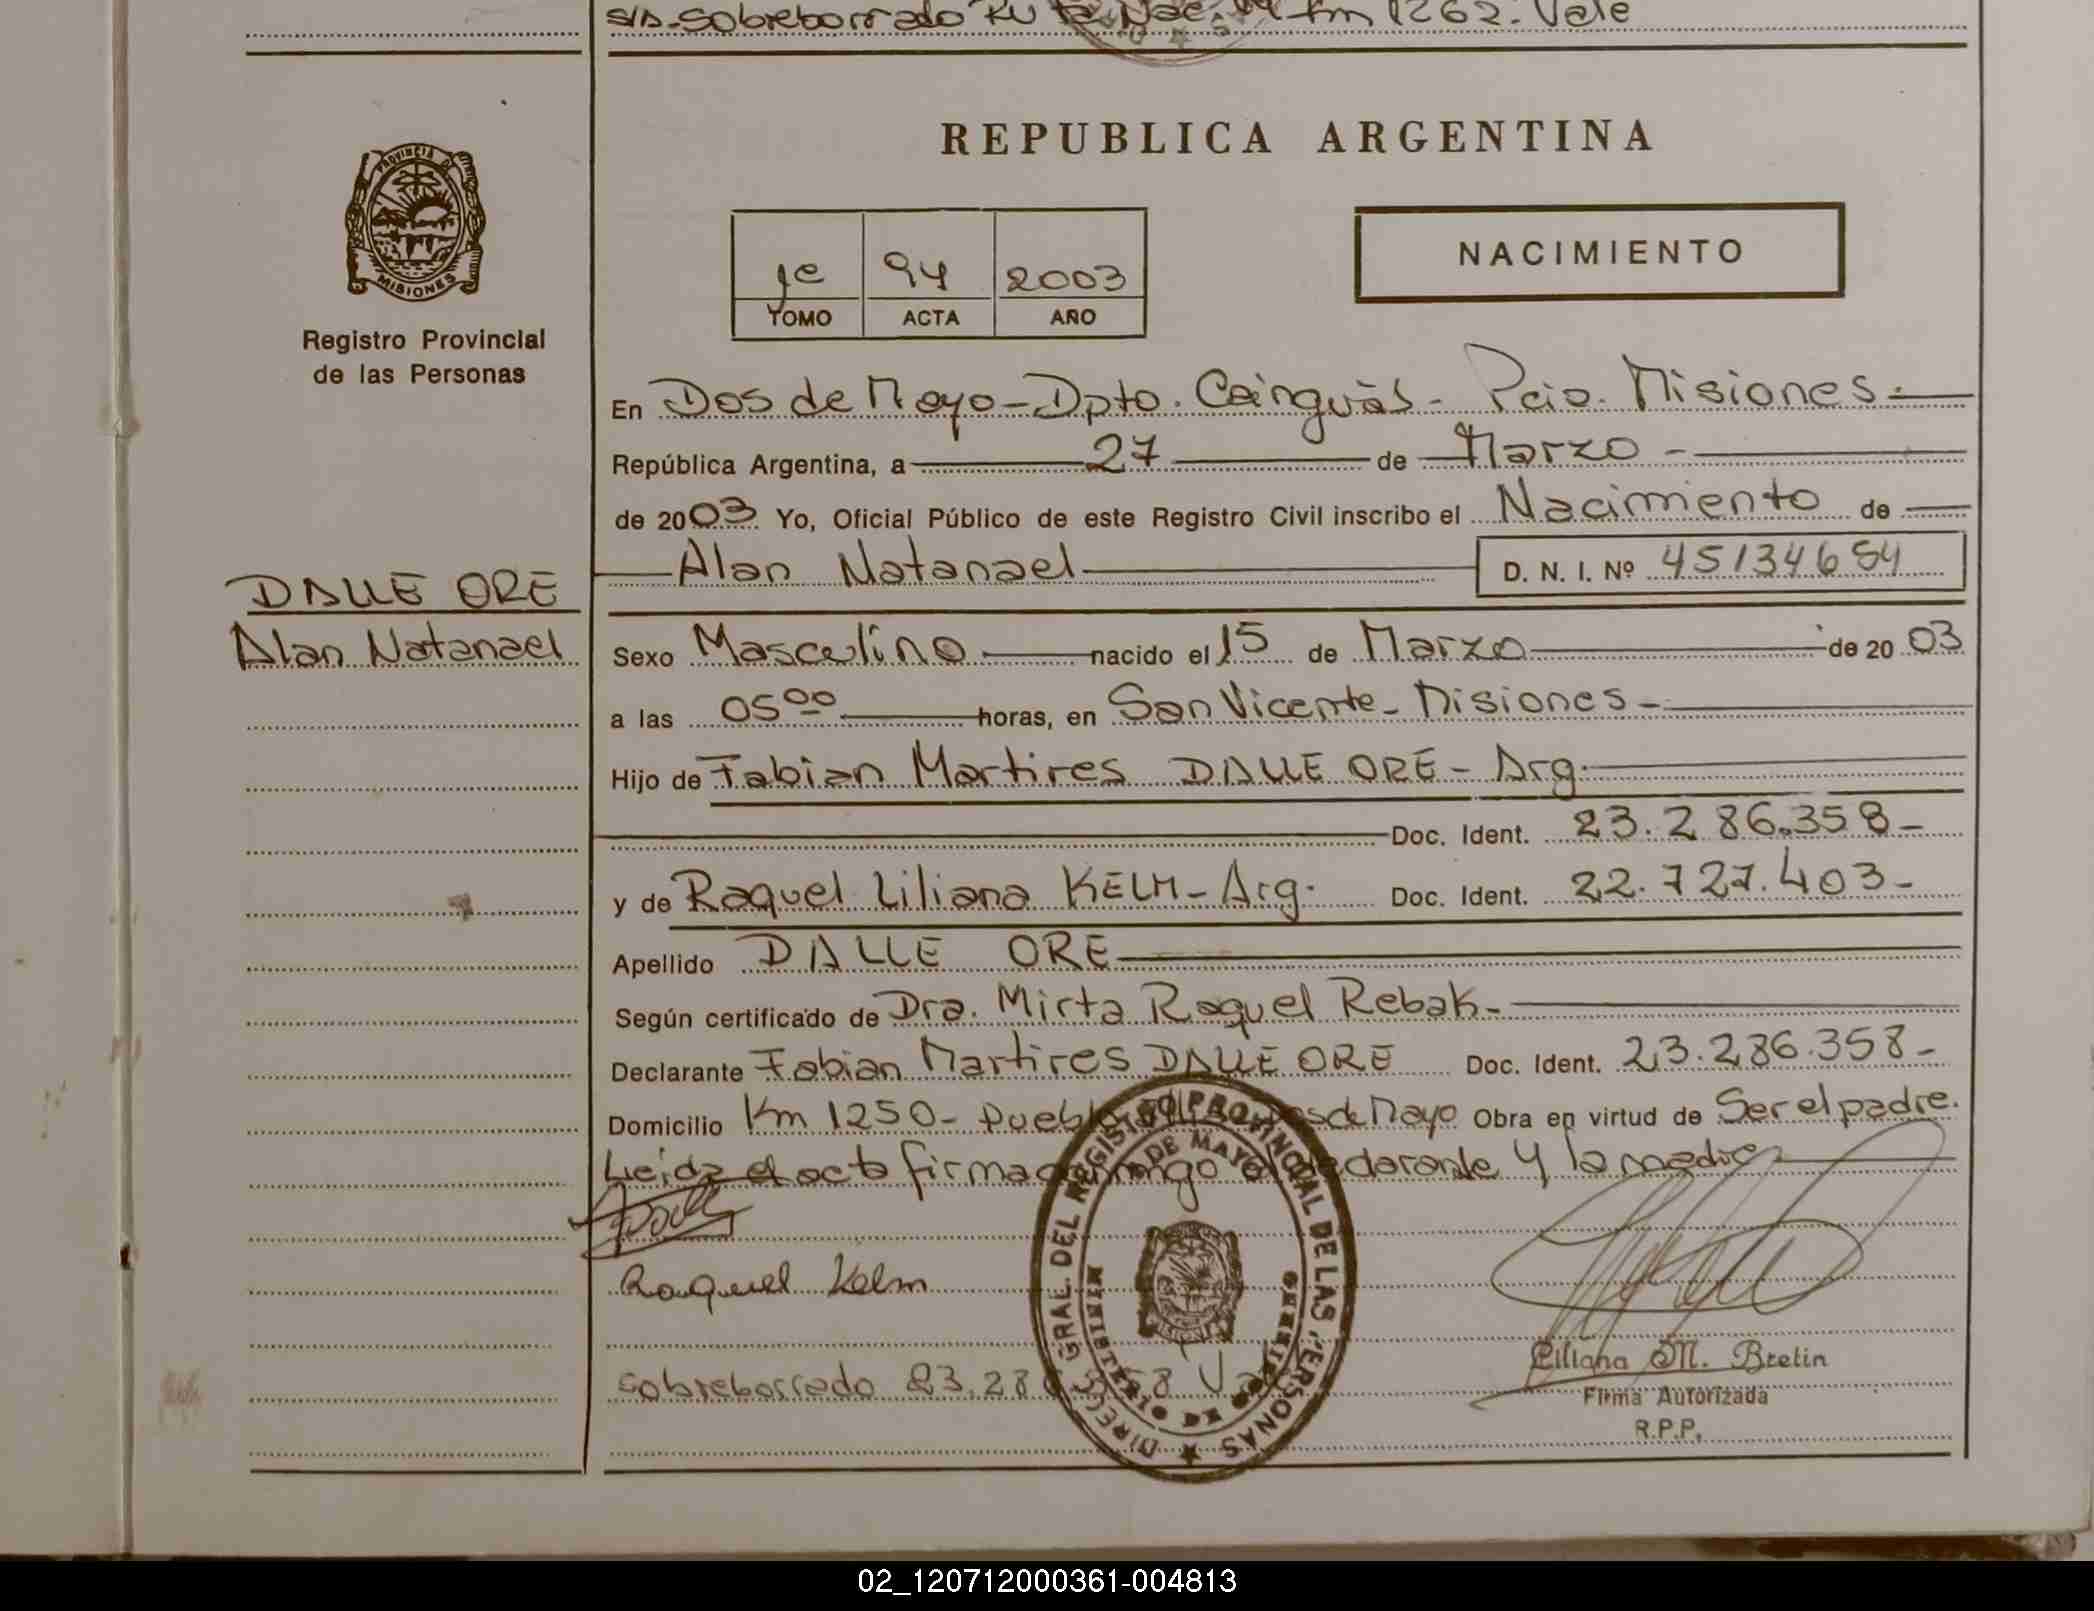 S/D.-Sobreborrado Ru ta Nac. 14 Km 1262. Vale
PROVINCIA DE
MISIONES
Registro Provincial
de las Personas
REPUBLICA ARGENTINA
1º 94 2003
TOMO ACTA AÑO
NACIMIENTO
En Dos de Mayo - Dpto. Cainguás - Pcia. Misiones.-
República Argentina, a 27 de Marzo -
de 2003 Yo, Oficial Público de este Registro Civil inscribo el Nacimiento de
Alan Natanael D. N. I. Nº 45134654
DALLE ORE
Alan Natanael
Sexo Masculino nacido el 15 de Marzo de 2003
a las 05 00 horas, en San Vicente - Misiones -
Hijo de Fabian Martires DALLE ORE - Arg.
Doc. Ident. 23.286.358-
y de Raquel Liliana KELM - Arg. Doc. Ident. 22.727.403-
Apellido DALLE ORE
Según certificado de Dra. Mirta Raquel Rebak-
Declarante Fabian Martires DALLE ORE Doc. Ident. 23.286.358-
Domicilio Km 1250 - Dos de Mayo Obra en virtud de Ser el padre.
Leida el acta firma conmigo el declarante y la madre
Raquel Kelm
Sobreborrado 23.286.358 Vale
DIREC. GRAL. DEL REGISTRO PROVINCIAL DE LAS PERSONAS
DOS DE MAYO
MINISTERIO DE GOBIERNO
Liliana M. Bretin
Firma Autorizada
R.P.P.
02_120712000361-004813